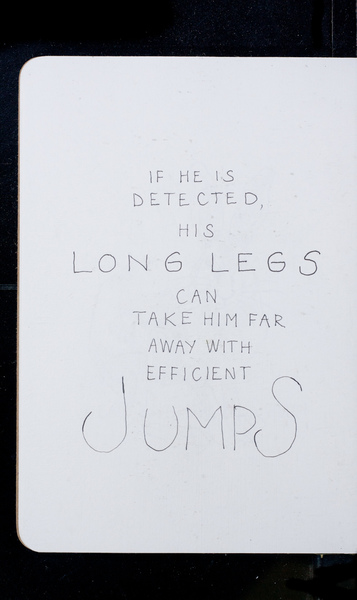 IF HE IS
DETECTED,
HIS
LONG LEGS
CAN
TAKE HIM FAR
AWAY WITH
EFFICIENT
JUMPS